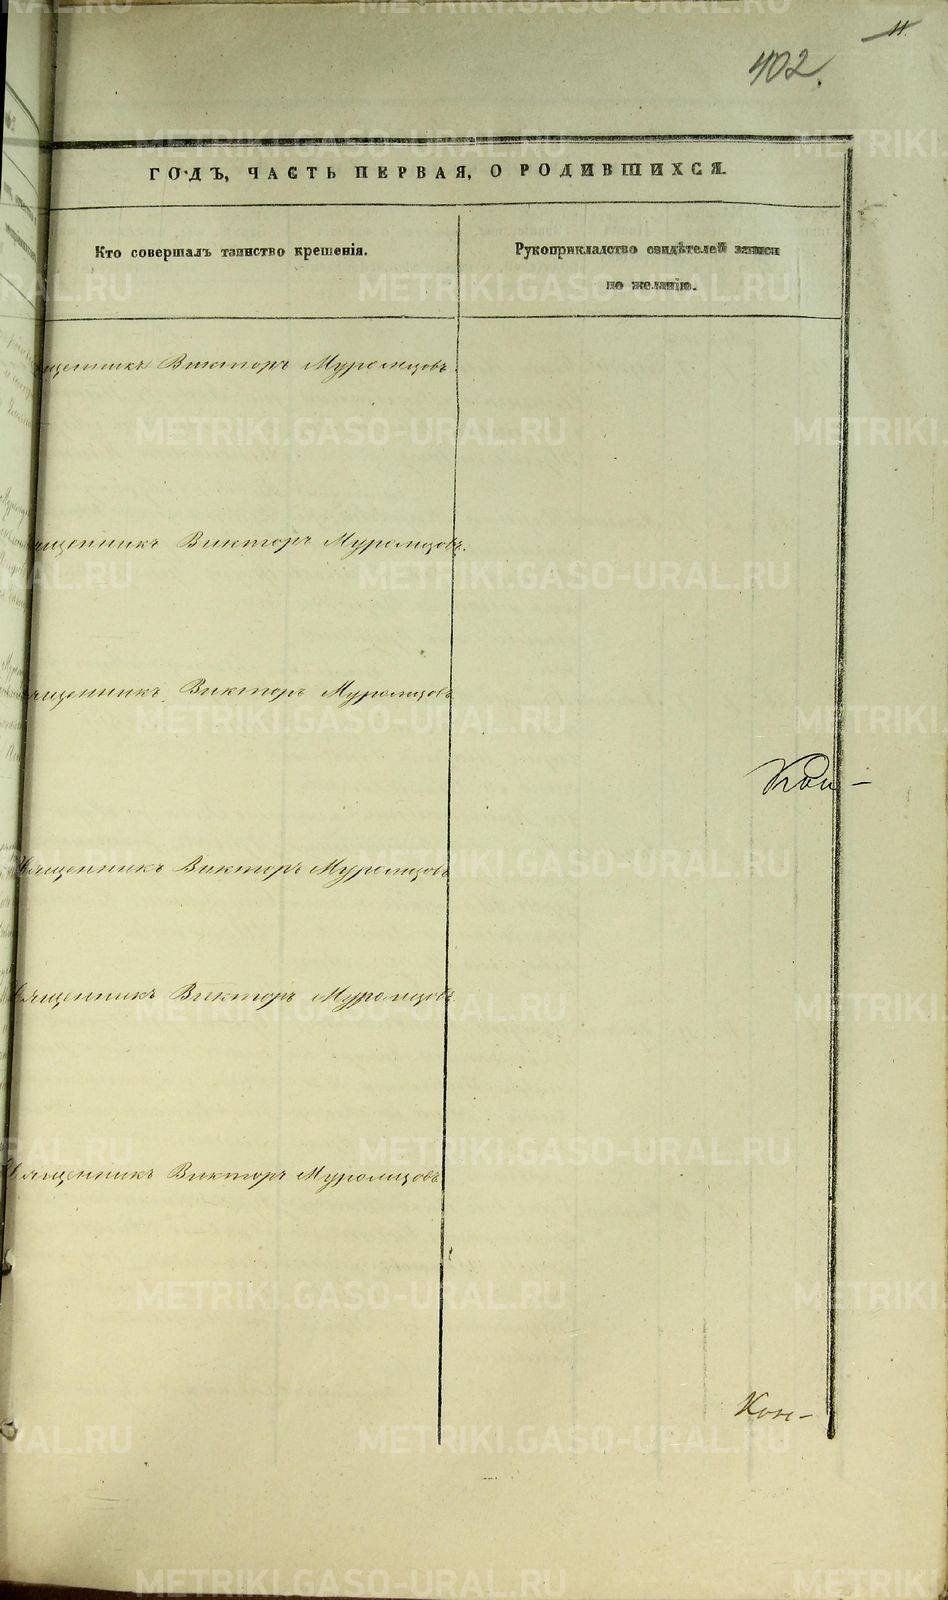 11.
402.
ГОДЪ, ЧАСТЬ ПЕРВАЯ, О РОДИВШИХСЯ.
Кто совершалъ таинство крещенія.
Рукоприкладство свидѣтелей записи
по желанію.
щенникъ Викторъ Муромцовъ.
ященникъ Викторъ Муромцовъ.
ященникъ Викторъ Муромцовъ
Священникъ Викторъ Муромцовъ
Священникъ Викторъ Муромцовъ.
Священникъ Викторъ Муромцовъ
Кон-
METRIKI.GASO-URAL.RU